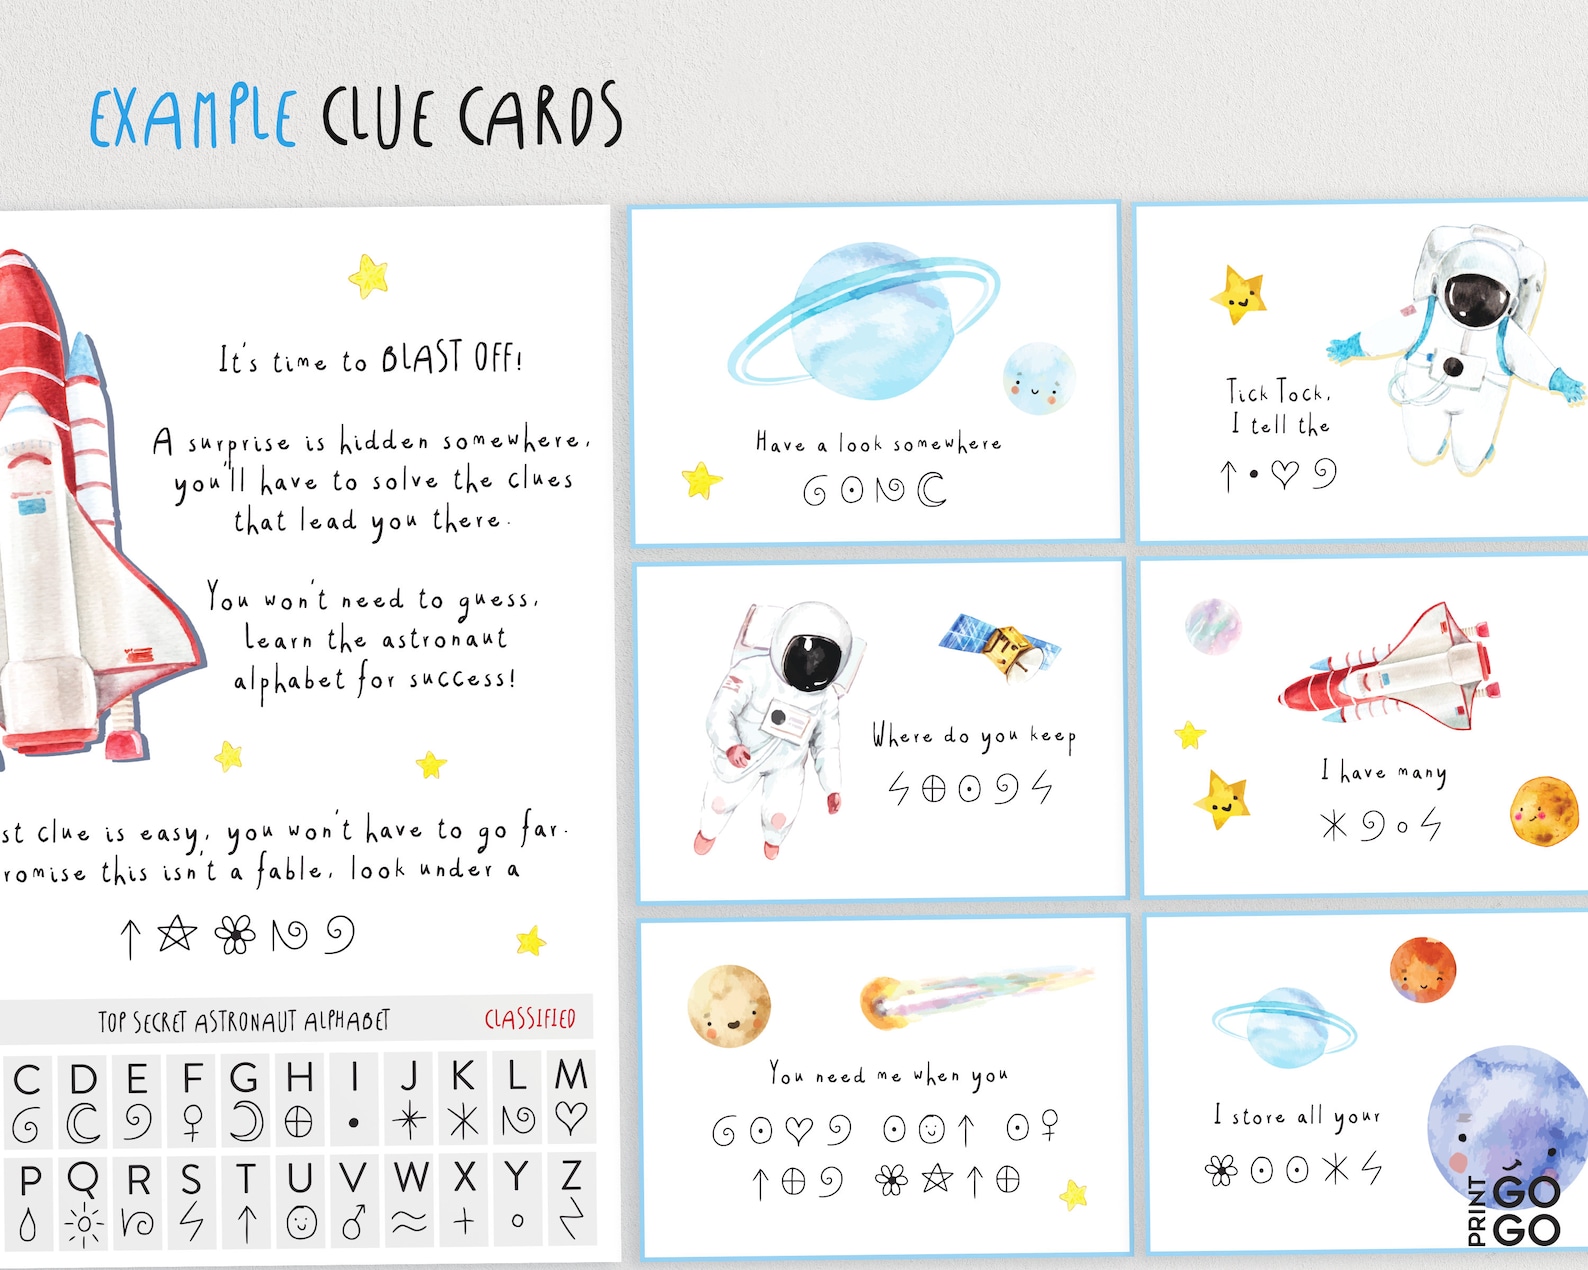 EXAMPLE CLUE CARDS
It's time to BLAST OFF!
A surprise is hidden somewhere,
you'll have to solve the clues
that lead you there.
You won't need to guess,
learn the astronaut
alphabet for success!
st clue is easy, you won't have to go far.
romise this isn't a fable, look under a
TOP SECRET ASTRONAUT ALPHABET CLASSIFIED
C D E F G H I J K L M
P Q R S T U V W X Y Z
Have a look somewhere
Tick Tock,
I tell the
Where do you keep
I have many
You need me when you
I store all your
PRINT
GO
GO